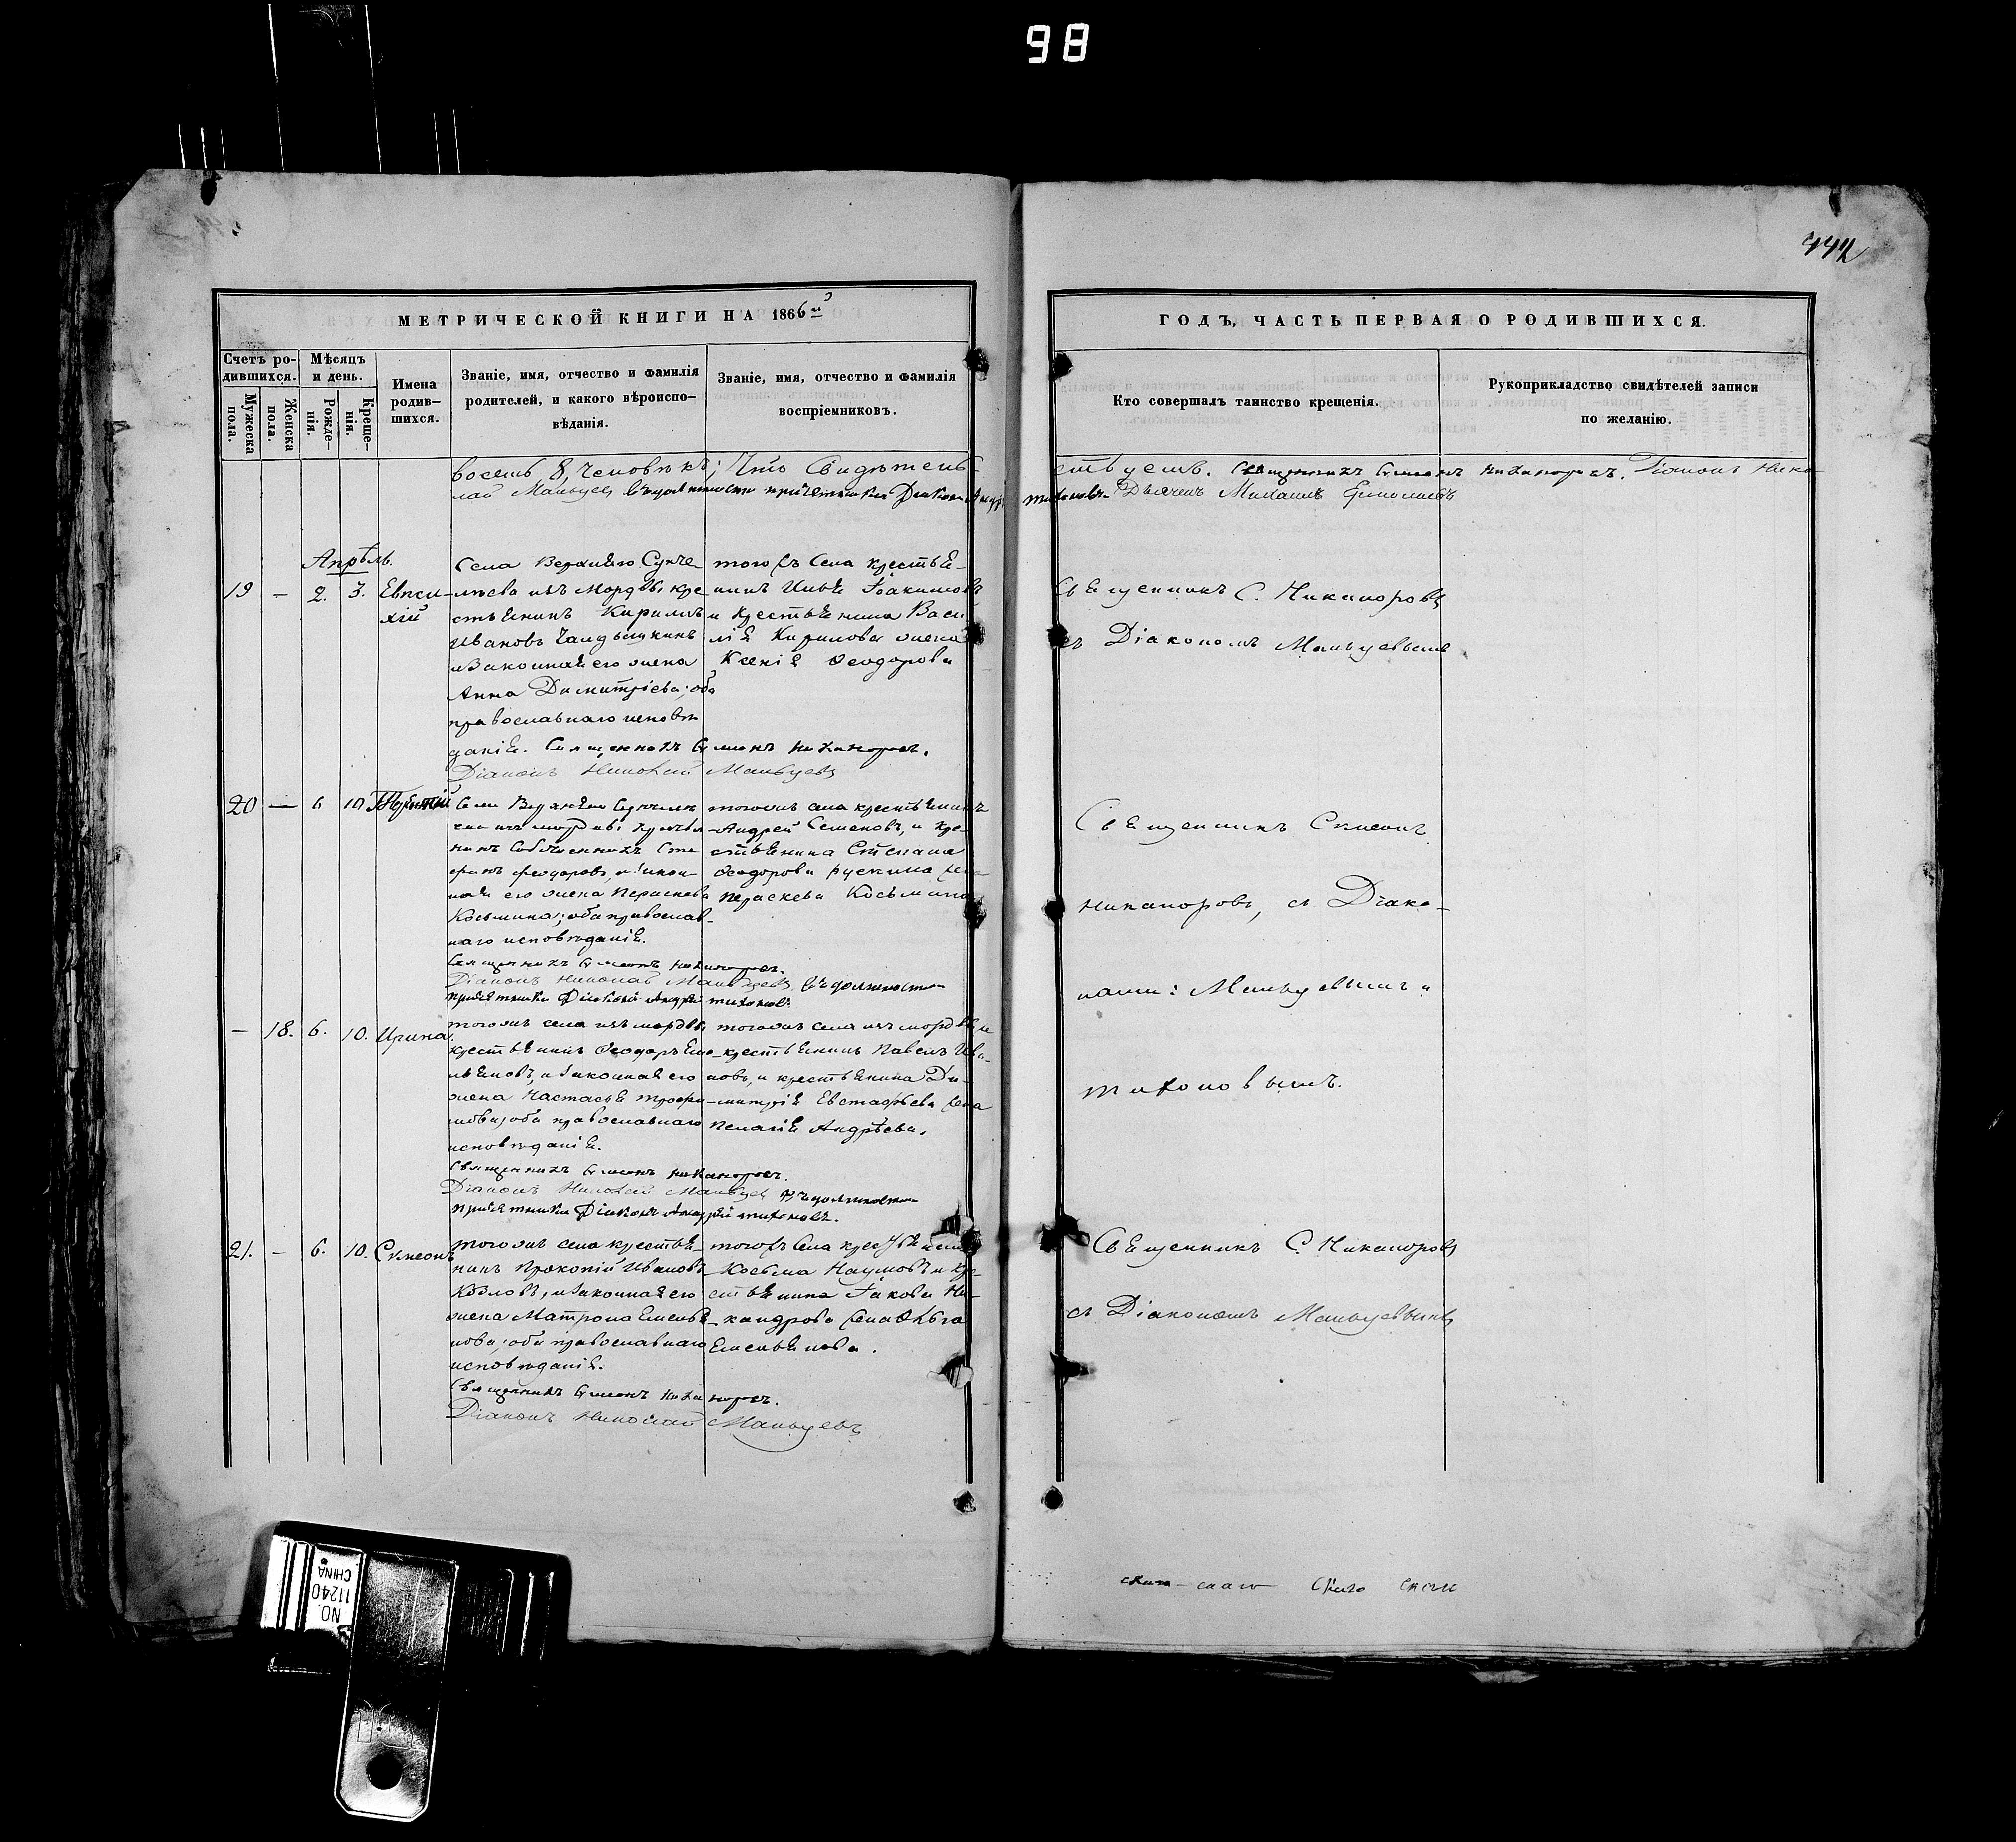 98
442
МЕТРИЧЕСКОЙ КНИГИ НА 1866й
ГОДЪ, ЧАСТЬ ПЕРВАЯ О РОДИВШИХСЯ.
Счетъ ро-
дившихся.
Мужеска
пола.
Женска
пола.
Мѣсяцъ
и день.
Рожде-
нія.
Креще-
нія.
Имена
родив-
шихся.
Званіе, имя, отчество и фамилія
родителей, и какого вѣроиспо-
вѣданія.
Званіе, имя, отчество и фамилія
воспріемниковъ.
Кто совершалъ таинство крещенія.
Рукоприкладство свидѣтелей записи
по желанію.
восемь 8, человѣкъ; Что Свидѣтель-
ствуемъ. Священникъ Симеонъ Никаноровъ. Діаконъ Нико-
лай Мальцевъ въ должности причетника Діаконъ Андрей
Тихоновъ Дьячекъ Михаилъ
Апрѣль.
19 — 2. 3. Евпси-
хій
Села Верхняго
изъ Мордвы кре-
стьянинъ Кирилъ
Ивановъ
и Законная его жена
Анна Димитріева; оба
православнаго исповѣ-
данія. Священникъ Симеонъ Никаноровъ.
Діаконъ Николай Мальцевъ
тогожъ Села крестья-
нинъ Илья Іоакимовъ
и крестьянина Васи-
лія Кирилова жена
Ксенія Ѳеодорова
Священникъ С. Никаноровъ
съ Діакономъ Мальцевымъ
20 — 6 10
Села Верхняго
изъ мордвы
Собственникъ Сте-
фанъ Ѳеодоровъ, и Закон-
ная его жена Параскева
Косьмина; оба православ-
наго исповѣданія.
Священникъ Симеонъ Никаноровъ.
Діаконъ Николай Мальцевъ въ должности
причетника Діаконъ Андрей Тихоновъ.
тогожъ села крестьянинъ
Андрей Семеновъ, и кре-
стьянина Степана
Ѳеодорова
Параскева Косьмина
Священникъ Симеонъ
Никаноровъ, съ Діако-
нами: Мальцевымъ и
Тихоновымъ.
— 18. 6. 10. Ирина.
тогожъ села изъ мордвы
крестьянинъ Ѳеодоръ Еме-
льяновъ, и Законная его
жена Настасья Трофи-
мова; оба православнаго
исповѣданія.
Священникъ Симеонъ Никаноровъ.
Діаконъ Николай Мальцевъ въ должности
причетника Діаконъ Андрей Тихоновъ.
тогожъ села изъ мордвы
крестьянинъ Павелъ Ива-
новъ, и крестьянина Ди-
митрія Евстафьева жена
Пелагія Андрѣева.
21. — 6. 10. Симеонъ
тогожъ села крестья-
нинъ Прокопій Ивановъ
Козловъ, и Законная его
жена Матрона Емелья-
нова; оба православнаго
исповѣданія.
Священникъ Симеонъ Никаноровъ.
Діаконъ Николай Мальцевъ
тогожъ Села крестьянинъ
Косьма Наумовъ и кре-
стьянина Іакова Ни-
кандрова жена Ѳекла
Емельянова.
Священникъ С. Никаноровъ
съ Діакономъ Мальцевымъ
NO.
11240
CHINA